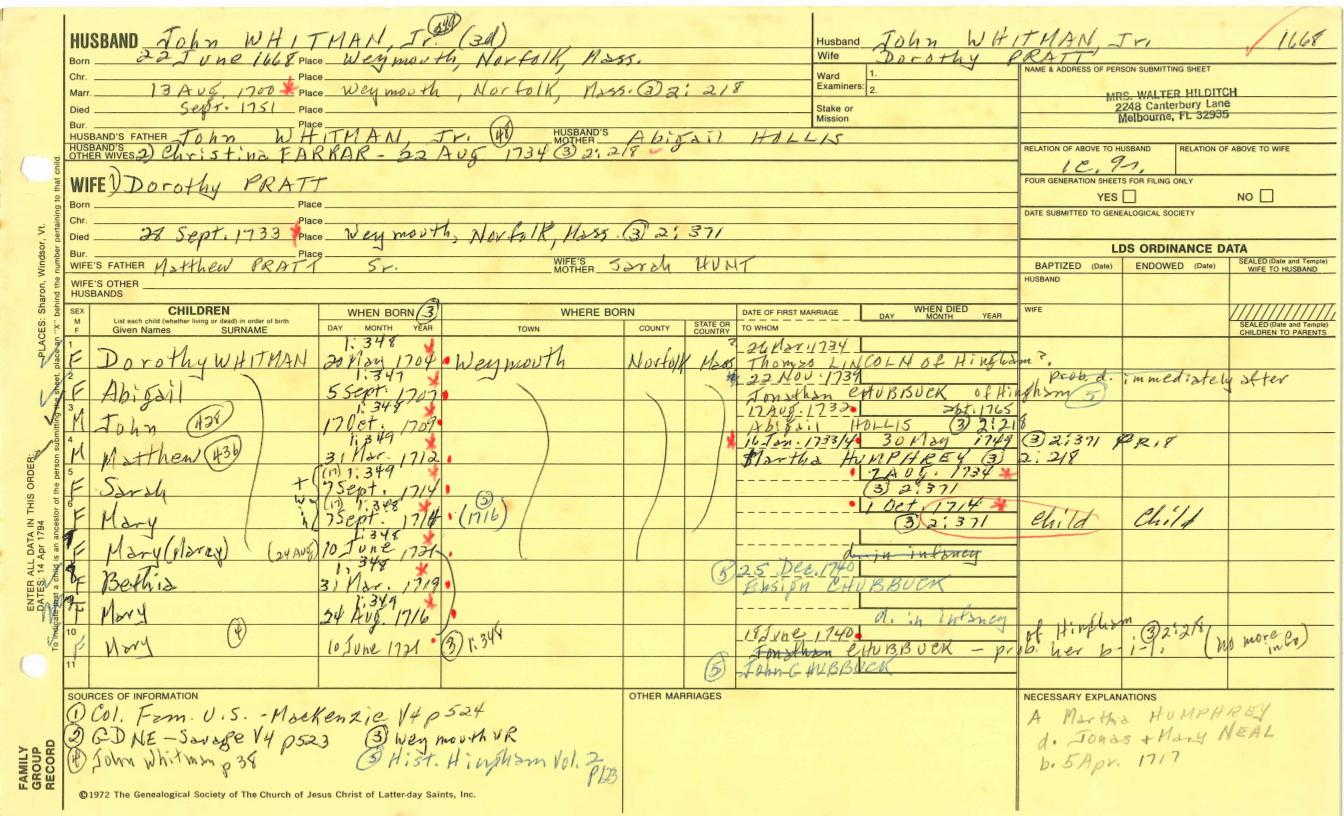 HUSBAND John WHITMAN, Jr. (3d)
Born 22 June 1668 Place Weymouth, Norfolk, Mass.
Chr. Place
Marr. 13 Aug. 1700 Place Weymouth, Norfolk, Mass. (3) 2: 218
Died Sept. 1751 Place
Bur. Place
HUSBAND'S FATHER John WHITMAN, Jr. (48) HUSBAND'S MOTHER Abigail HOLLIS
HUSBAND'S OTHER WIVES 2) Christina FARRAR - 22 Aug 1734 (3) 2: 218
WIFE 1) Dorothy PRATT
Born Place
Chr. Place
Died 28 Sept. 1733 Place Weymouth, Norfolk, Mass. (3) 2: 371
Bur. Place
WIFE'S FATHER Matthew PRATT Sr. WIFE'S MOTHER Sarah HUNT
WIFE'S OTHER HUSBANDS
Husband John WHITMAN, Jr. 1668
Wife Dorothy PRATT
Ward Examiners: 1.
2.
Stake or Mission
NAME & ADDRESS OF PERSON SUBMITTING SHEET
MRS. WALTER HILDITCH
2248 Canterbury Lane
Melbourne, FL 32935
RELATION OF ABOVE TO HUSBAND RELATION OF ABOVE TO WIFE
FOUR GENERATION SHEETS FOR FILING ONLY
YES NO
DATE SUBMITTED TO GENEALOGICAL SOCIETY
LDS ORDINANCE DATA
BAPTIZED (Date) ENDOWED (Date) SEALED (Date and Temple) WIFE TO HUSBAND
HUSBAND
WIFE
SEALED (Date and Temple) CHILDREN TO PARENTS
SEX M F
CHILDREN
List each child (whether living or dead) in order of birth
Given Names SURNAME
WHEN BORN (3)
DAY MONTH YEAR
WHERE BORN
TOWN COUNTY STATE OR COUNTRY
DATE OF FIRST MARRIAGE
TO WHOM
WHEN DIED
DAY MONTH YEAR
1 1: 348 ? 26 Mar. 1734
F Dorothy WHITMAN 20 May 1704 Weymouth Norfolk Mass Thomas LINCOLN of Hingham?
2 1: 347 22 Nov. 1739 prob. d. immediately after
F Abigail 5 Sept. 1707 Jonathan CHUBBUCK of Hingham (5)
3 1: 348 17 Aug. 1732 abt. 1765
M John (428) 17 Oct. 1709 Abigail HOLLIS (3) 2: 218
4 1: 349 16 Jan. 1733/4 30 May 1749 (3) 2: 371 P.R. 8
M Matthew (436) 31 Mar. 1712 Martha HUMPHREY (3) 2: 218
5 (17) 1: 349 2 Aug. 1734
F Sarah 7 Sept. 1714 (3) 2: 371
6 (17) 1: 348 1 Oct. 1714
F Mary 7 Sept. 1714 (1716) (3) 2: 371 Child Child
7
F Mary (24 Aug) 10 June 1721 d. in infancy
8 1: 348 (5) 25 Dec. 1740
F Bethia 31 Mar. 1719 Ensign CHUBBUCK
9 1: 349 d. in infancy
F Mary 24 Aug. 1716
10 18 June 1740 of Hingham (3) 2: 218
F Mary (4) 10 June 1721 (3) 1: 348 Jonathan CHUBBUCK - prob her b-i-l. (No more in Co)
11 (5) John CHUBBUCK
SOURCES OF INFORMATION
(1) Col. Fam. U.S. - Mackenzie V4 p524
(2) GDNE - Savage V4 p523 (3) Weymouth VR
(4) John Whitman p 38 (5) Hist. Hingham Vol. 2 p123
OTHER MARRIAGES
NECESSARY EXPLANATIONS
A Martha HUMPHREY
d. Jonas + Mary NEAL
b. 5 Apr. 1717
©1972 The Genealogical Society of The Church of Jesus Christ of Latter-day Saints, Inc.
FAMILY GROUP RECORD
ENTER ALL DATA IN THIS ORDER:
DATES: 14 Apr 1794 PLACES: Sharon, Windsor, Vt.
To indicate that a child is an ancestor of the person submitting the sheet, place an "X" behind the number pertaining to that child.